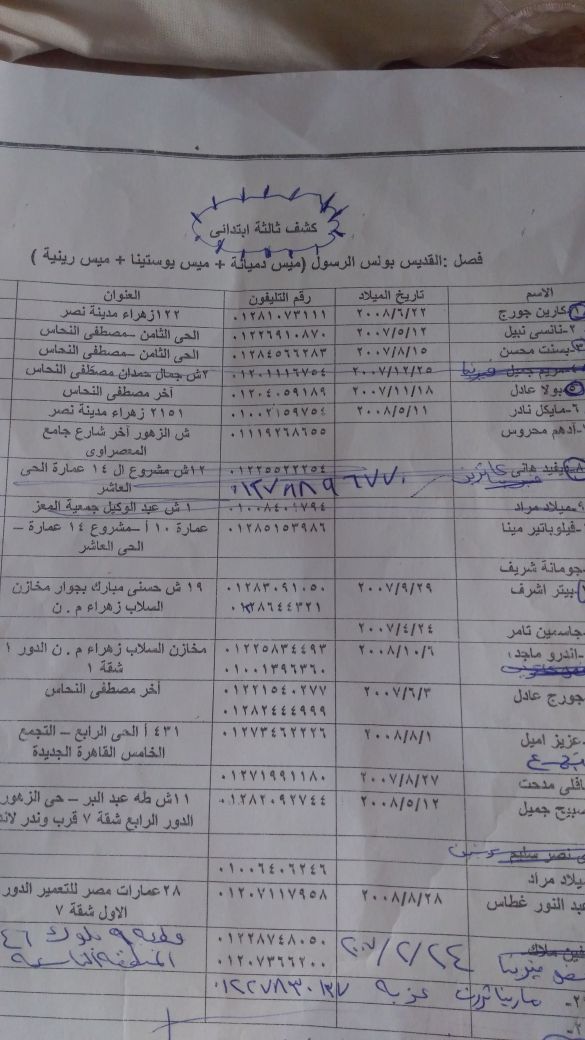 كشف ثالثة ابتدائى
فصل :القديس بولس الرسول (ميس دميانة + ميس يوستينا + ميس رينية )
الاسم تاريخ الميلاد رقم التليفون العنوان
كارين جورج ٢٠٠٨/٦/٢٢ ٠١٢٨١٠٧٣١١١ ١٢٢زهراء مدينة نصر
٢-نانسى نبيل ٢٠٠٧/٥/١٢ ٠١٢٢٦٩١٠٨٧٠ الحى الثامن –مصطفى النحاس
بسنت محسن ٢٠٠٧/٨/١٥ ٠١٢٨٤٥٦٦٢٨٣ الحى الثامن –مصطفى النحاس
جميل ٢٠٠٧/١٢/٢٥ ٠١٢٠١١١٦٧٥٤ ٢ش جمال حمدان مصطفى النحاس
بولا عادل ٢٠٠٧/١١/١٨ ٠١٢٠٤٠٥٩١٨٩ آخر مصطفى النحاس
٦-مايكل نادر ٢٠٠٨/٥/١١ ٠١٠٠٢١٥٩٧٥٤ ٢١٥١ زهراء مدينة نصر
أدهم محروس ٠١١١٩٢٦٨٦٥٥ ش الزهور آخر شارع جامع
المعصراوى
ديفيد هانى ٠١٢٢٥٥٢٢٢٥٤ ١٢ش مشروع ال ١٤ عمارة الحى
العاشر
ميلاد مراد ٠١٠٠٨٤٠١٧٩٤ ١ ش عبد الوكيل جمعية المعز
فيلوباتير مينا ٠١٢٨٥١٥٣٩٨٦ عمارة ١٠ أ –مشروع ١٤ عمارة –
الحى العاشر
جومانة شريف
بيتر اشرف ٢٠٠٧/٩/٢٩ ٠١٢٨٣٠٩١٠٥٠ ١٩ ش حسنى مبارك بجوار مخازن
٠١٢٨٦٤٤٣٢١ السلاب زهراء م . ن
جاسمين تامر ٢٠٠٧/٤/٢٤
اندرو ماجد ٢٠٠٨/١٠/٦ ٠١٢٢٥٨٣٤٤٩٣ مخازن السلاب زهراء م . ن الدور ١
٠١٠٠١٣٩٦٣٦٠ شقة ١
جورج عادل ٢٠٠٧/٦/٣ ٠١٢٢١٥٤٠٢٧٧ أخر مصطفى النحاس
٠١٢٨٢٤٤٤٩٩٩
عزيز اميل ٢٠٠٨/٨/١ ٠١٢٧٣٤٦٢٢٢٦ ٤٣١ أ الحى الرابع – التجمع
الخامس القاهرة الجديدة
افلى مدحت ٢٠٠٧/٨/٢٧ ٠١٢٧١٩٩١١٨٠
سبيح جميل ٢٠٠٨/٥/١٢ ٠١٢٨٢٠٩٢٧٤٤ ١١ش طه عبد البر – حى الزهور
الدور الرابع شقة ٧ قرب وندر لاند
نصر سليم
ميلاد مراد ٠١٠٠٦٤٠٦٢٤٦
عبد النور غطاس ٢٠٠٨/٨/٢٨ ٠١٢٠٧١١٧٩٥٨ ٢٨عمارات مصر للتعمير الدور
الاول شقة ٧
ملاك ٢٠٠٧/٢/٢٤ ٠١٢٢٨٧٤٨٠٥٠ قطعة ٩ بلوك ٤٦
٠١٢٠٧٣٦٦٢٠٠ المنطقة التاسعة